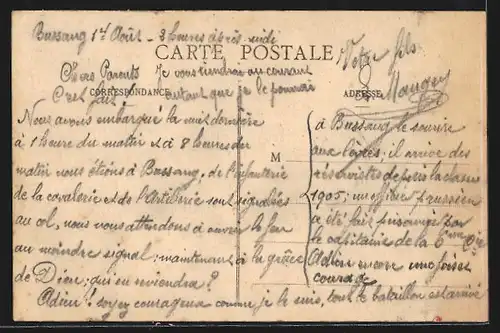 Bussang 1er Août - 3 heures après midi
CARTE POSTALE
Chers Parents
Je vous tiendrai au courant
C'est fait
autant que je le pourrai
CORRESPONDANCE
ADRESSE
Votre fils
Nous avons embarqué la nuit dernière
à 1 heure du matin et à 8 heures du
matin nous étions à Bussang, de l'infanterie
de la cavalerie et de l'Artillerie sont signalées
au col, nous nous attendons à ouvrir le feu
au moindre signal; maintenant à la grâce
de Dieu; qui en reviendra?
Adieu! soyez courageux comme je le suis, tout le bataillon est arrivé
M
à Bussang le sourire
aux lèvres; il arrive des
réservistes depuis la classe
1905; un officier prussien
a été fait prisonnier par
le capitaine de la 6ème Cie
Adieu encore une fois
courage